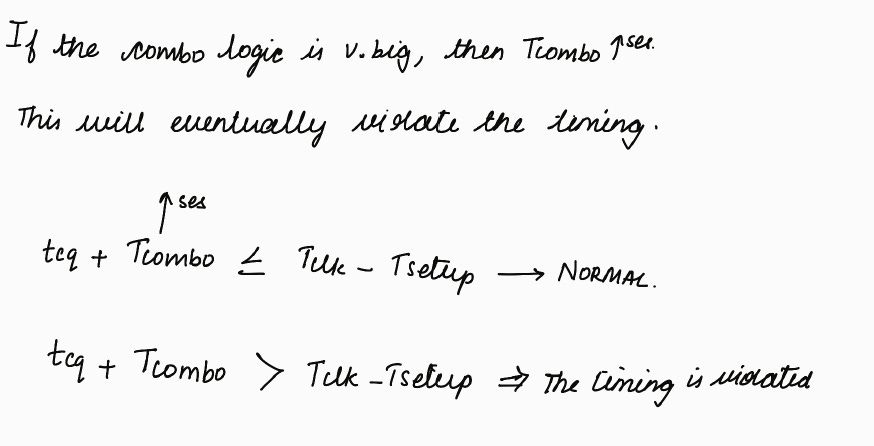 If the combo logic is v. big, then Tcombo ↑ses.
This will eventually violate the timing.
↑ses
tcq + Tcombo ≤ Tclk - Tsetup → NORMAL.
tcq + Tcombo > Tclk - Tsetup ⇒ The timing is violated